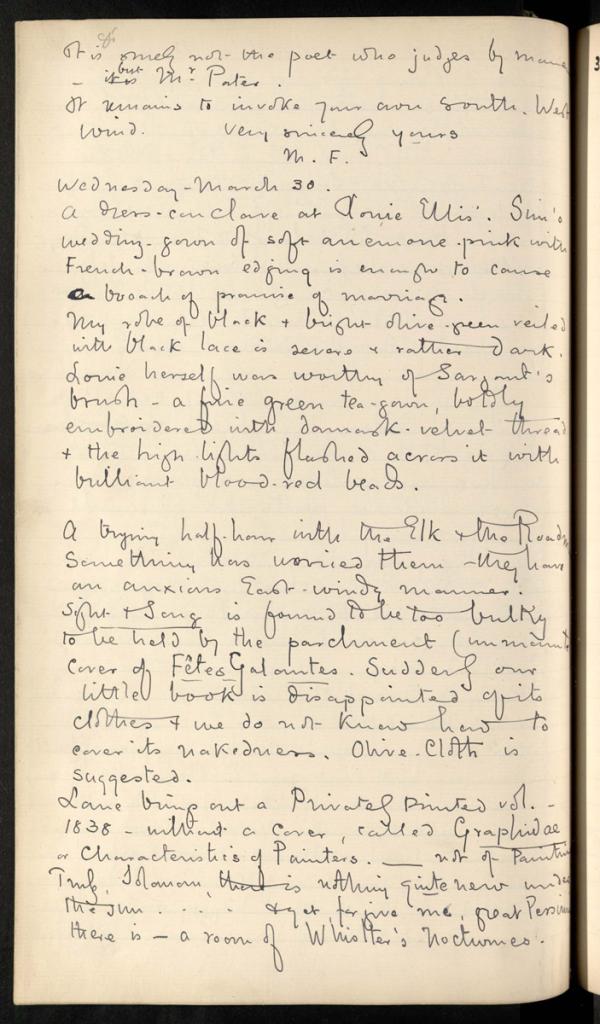 It is surely not the poet who judges by manner
- it is but Mr. Pater.
It remains to invoke your own South-West
wind. Very sincerely yours
M. F.
Wednesday - March 30.
A dress-conclave at Louie Ellis'. Sim's
wedding-gown of soft anemone-pink with
French-brown edging is enough to cause
a breach of promise of marriage.
My robe of black + bright olive-green veiled
with black lace is severe + rather dark.
Louie herself was worthy of Sargent's
brush - a fine green tea-gown, boldly
embroidered with damask-velvet thread
+ the high-lights flashed across it with
brilliant blood-red beads.
A trying half-hour with the Elk + the
Something has worried them - they have
an anxious East-windy manner.
Sight + Song is found to be too bulky
to be held by the parchment (
cover of Fêtes Galantes. Suddenly our
little book is disappointed of its
clothes + we do not know how to
cover its nakedness. Olive-Cloth is
suggested.
Lane brings out a Privately Printed vol. -
1838 - without a cover, called Graphidae
or Characteristics of Painters. — not of Painting
Truly, Solomon, there is nothing quite new under
the sun. . . . . + yet, forgive me, great
there is - a room of Whistler's Nocturnes.